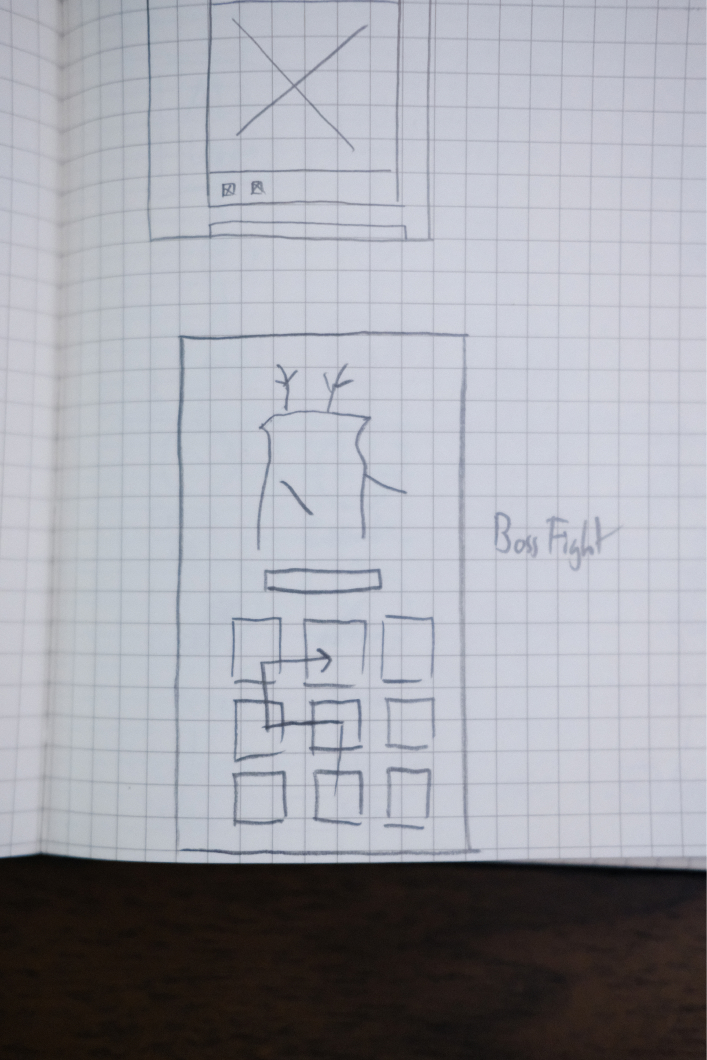 Boss Fight